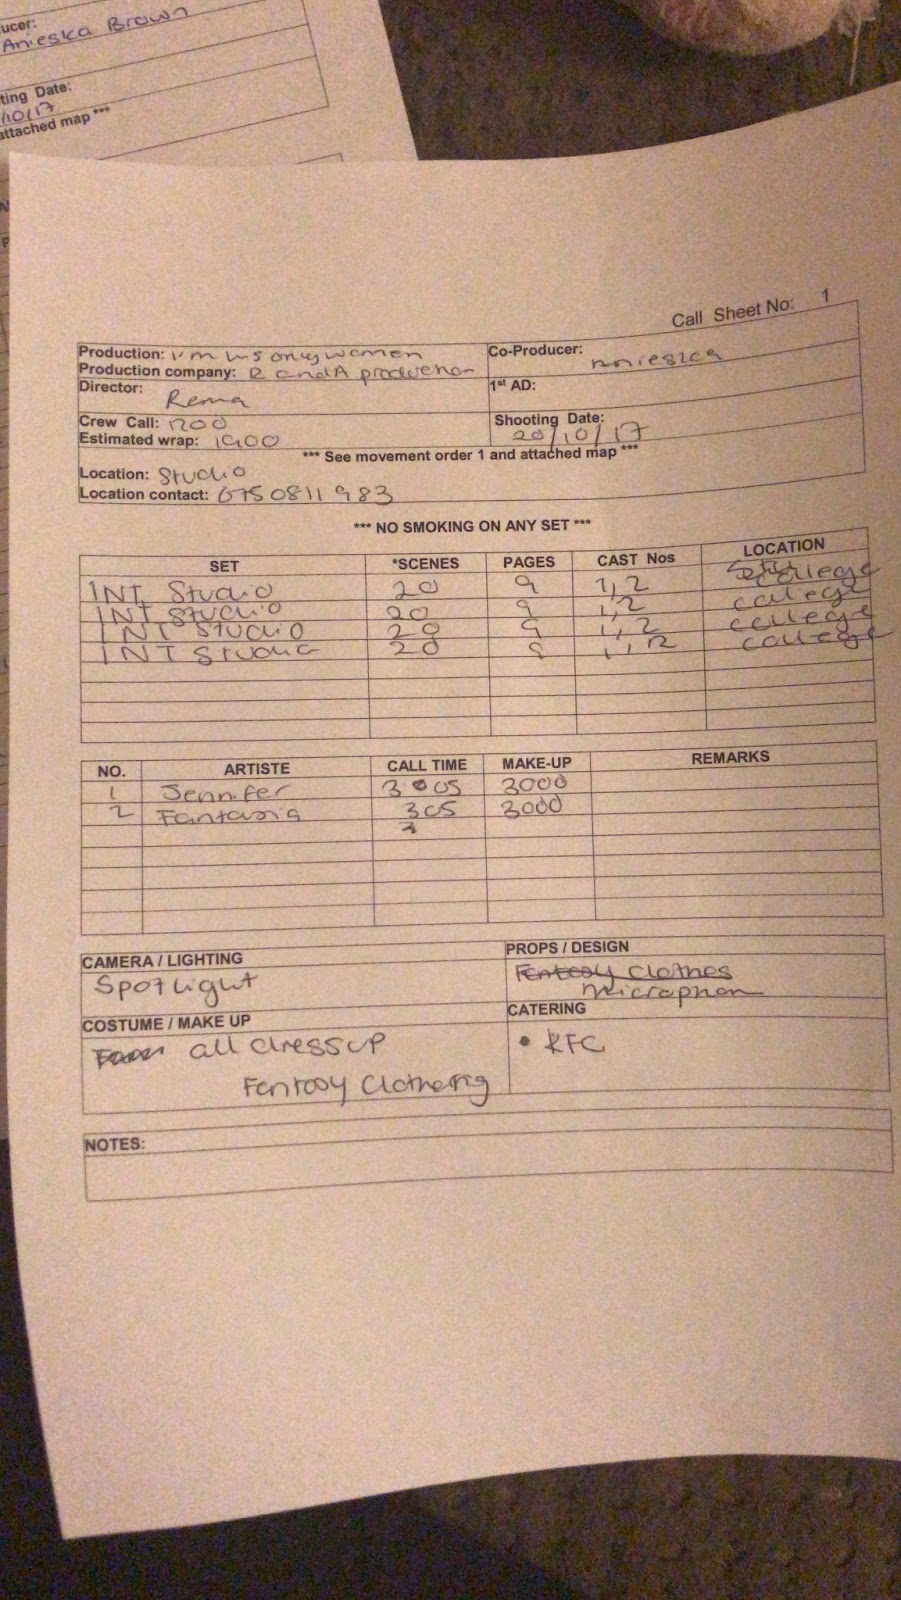 ucer:
Anieska Brown
ting Date:
/10/17
attached map ***
Call Sheet No: 1
Production: I'm only women
Co-Producer: Anieszca
Production company: R and A production
Director: Rema
1st AD:
Crew Call: 1200
Shooting Date: 20/10/17
Estimated wrap: 1900
*** See movement order 1 and attached map ***
Location: Studio
Location contact: 0750811983
*** NO SMOKING ON ANY SET ***
SET *SCENES PAGES CAST Nos LOCATION
INT Studio 20 9 1,2 college
INT Studio 20 9 1,2 college
INT Studio 20 9 1,2 college
INT Studio 20 9 1,2 college
NO. ARTISTE CALL TIME MAKE-UP REMARKS
1 Jennifer 3005 3000
2 Fantasia 305 3000
3
CAMERA / LIGHTING
Spotlight
PROPS / DESIGN
Fentesy Clothes
Microphon
COSTUME / MAKE UP
all dress up
Fentosy Clothering
CATERING
• KFC
NOTES: